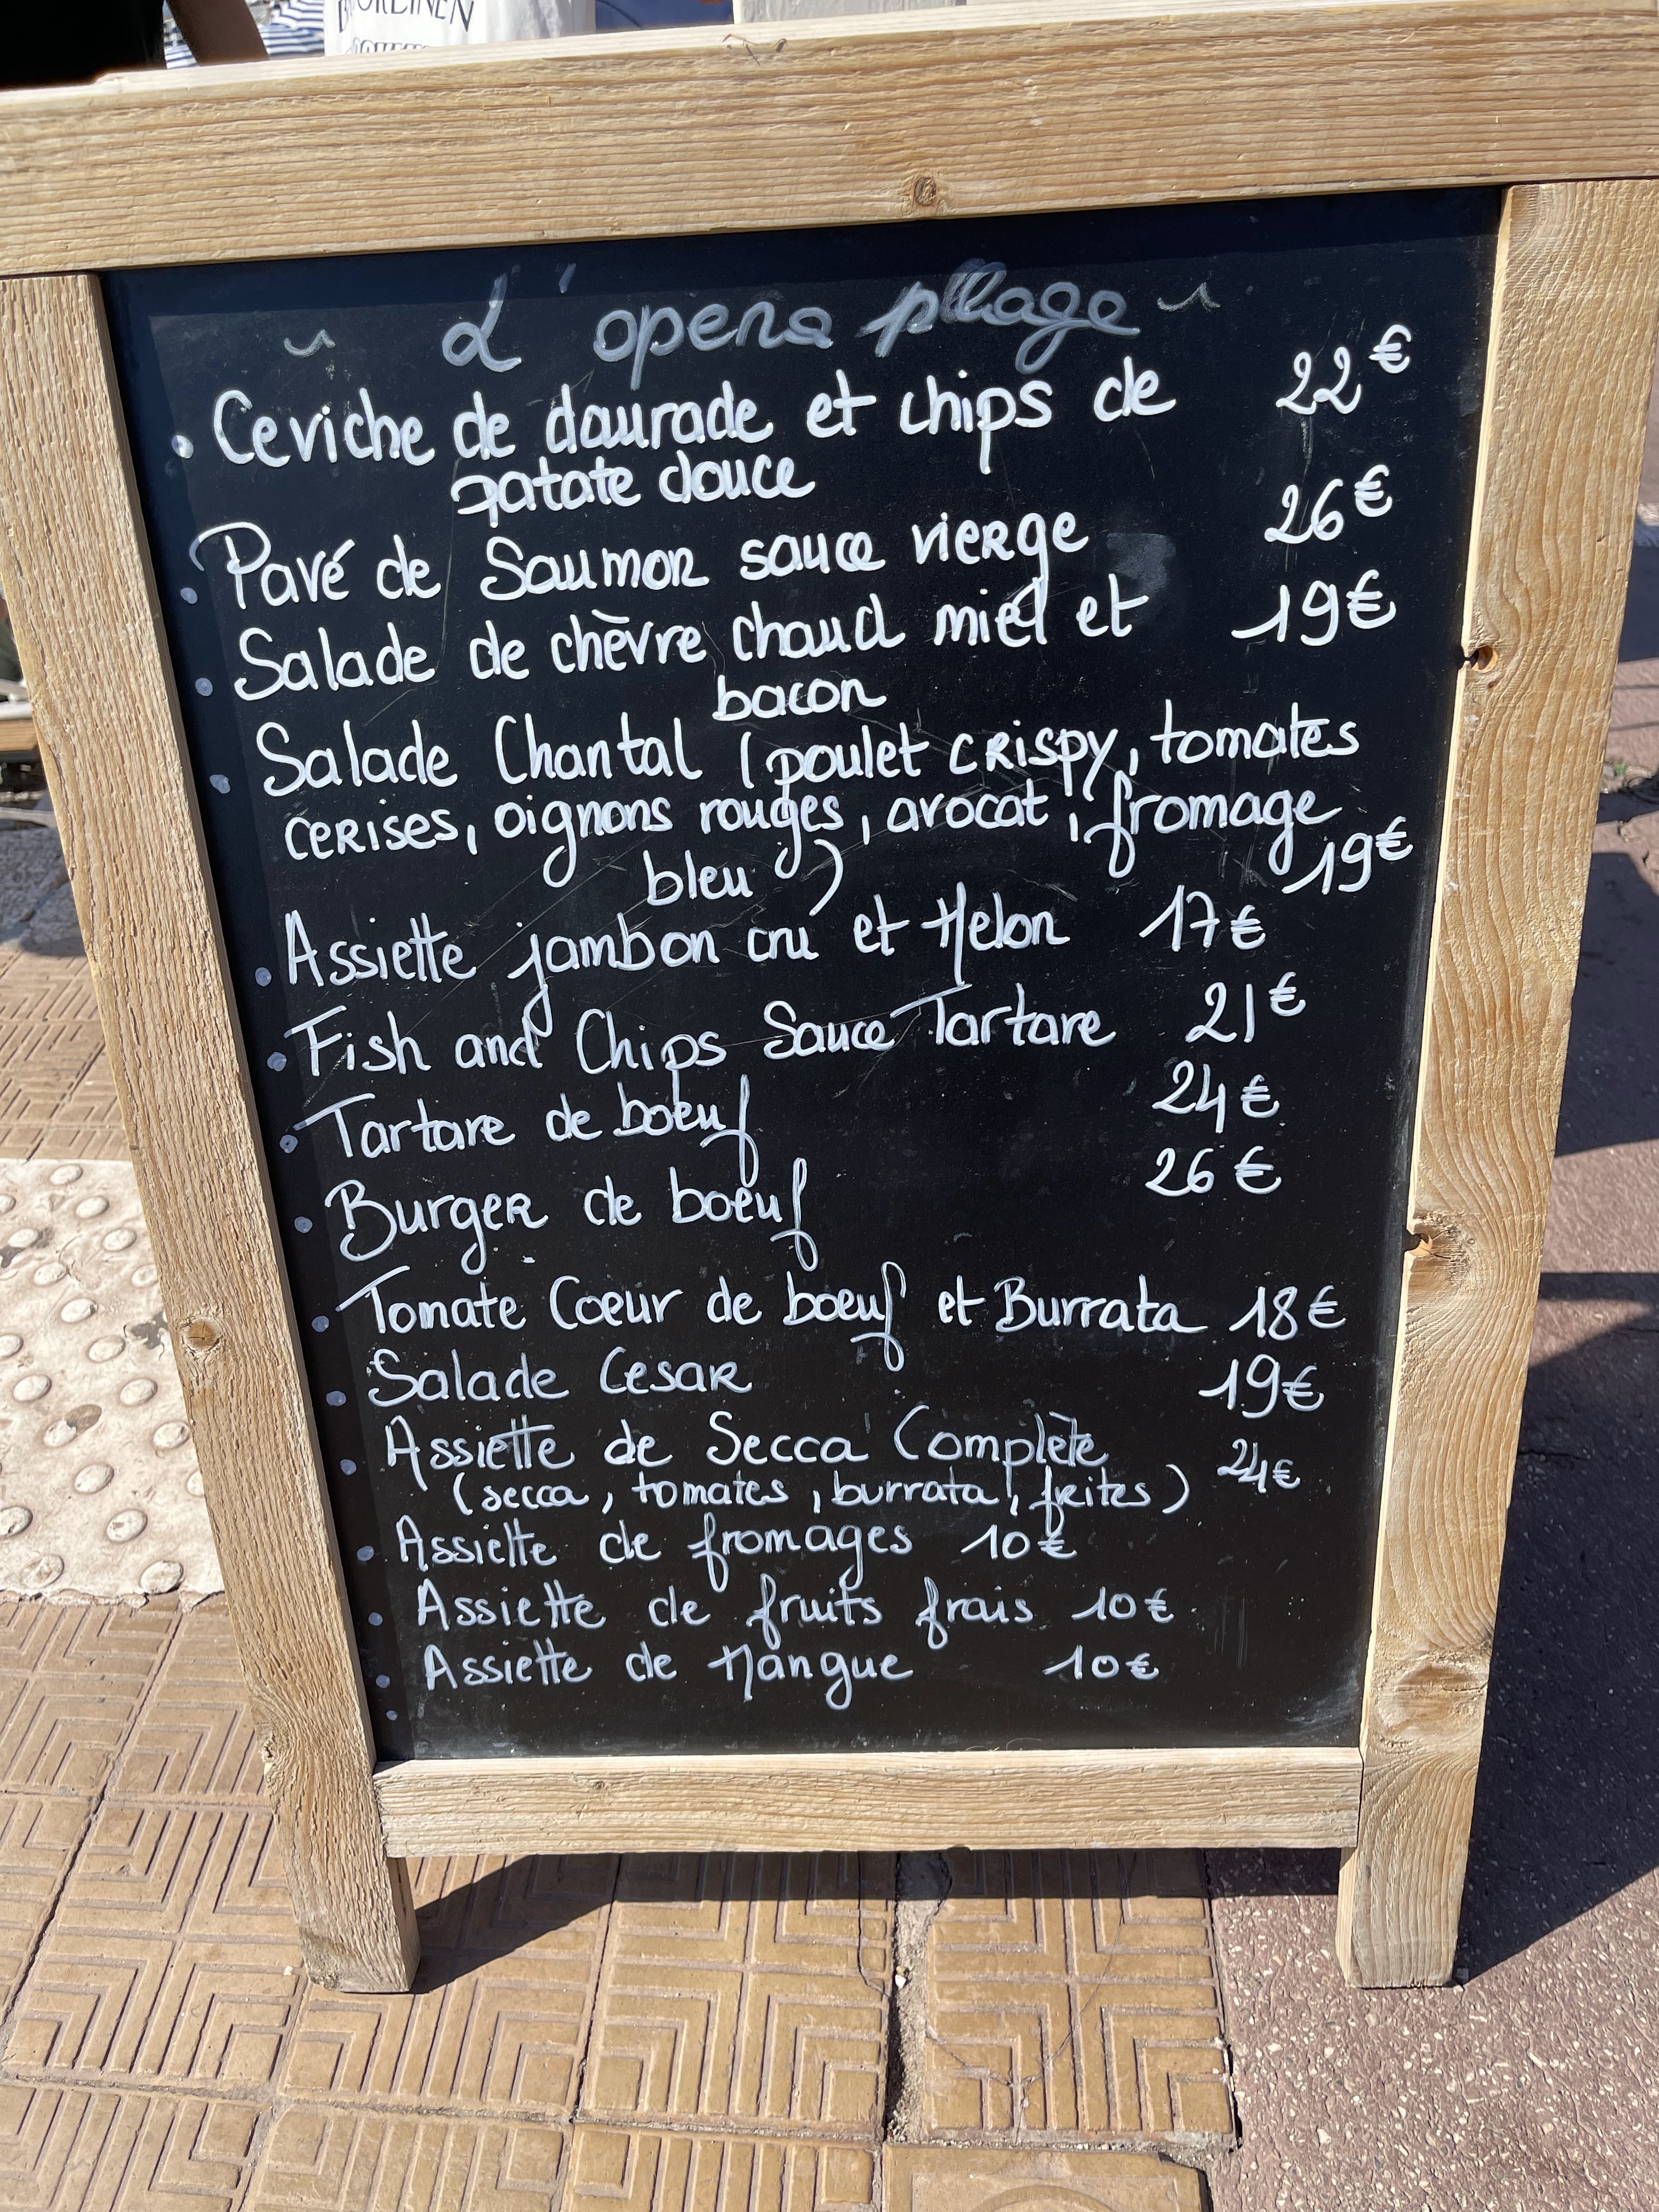 L'opera plage
• Ceviche de daurade et chips de 22€
patate douce
• Pavé de Saumon sauce vierge 26€
• Salade de chèvre chaud miel et 19€
bacon
• Salade Chantal (poulet crispy, tomates
cerises, oignons rouges, avocat, fromage
bleu) 19€
• Assiette jambon cru et Melon 17€
• Fish and Chips Sauce Tartare 21€
• Tartare de boeuf 24€
• Burger de boeuf 26€
• Tomate Coeur de boeuf et Burrata 18€
• Salade Cesar 19€
• Assiette de Secca Complète 24€
(secca, tomates, burrata, frites)
• Assiette de fromages 10€
• Assiette de fruits frais 10€
• Assiette de Mangue 10€